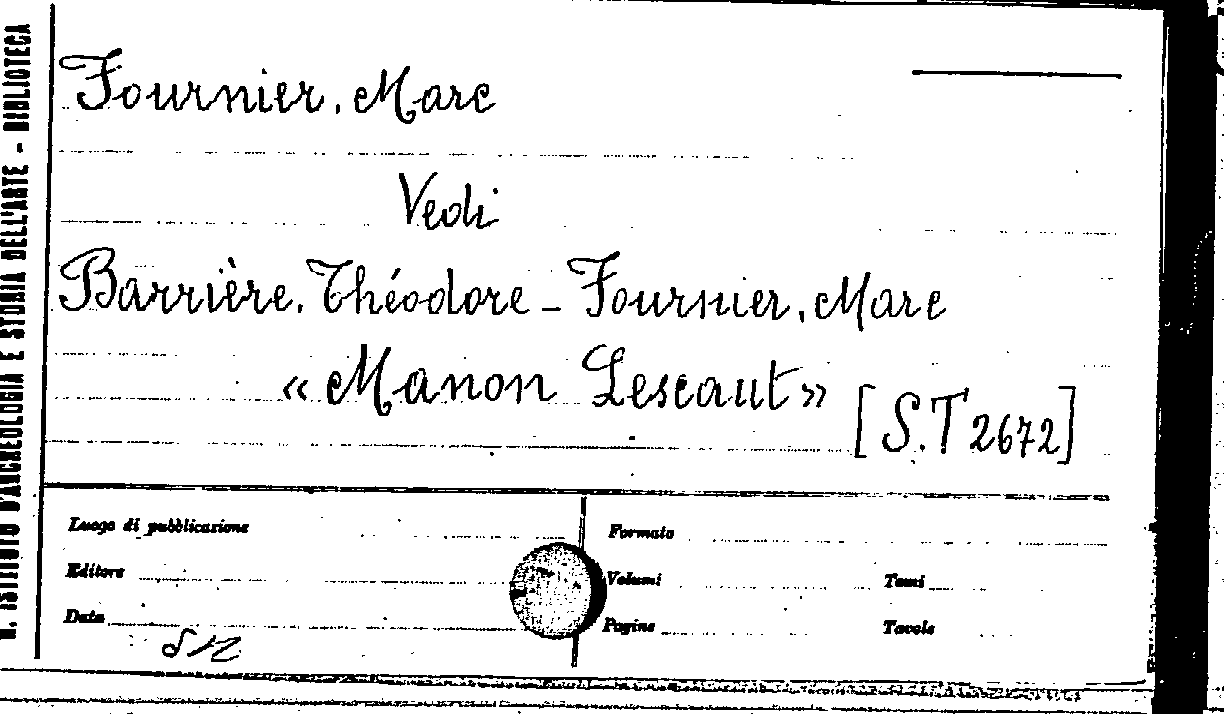 R. ISTITUTO D'ARCHEOLOGIA E STORIA DELL'ARTE - BIBLIOTECA
Fournier, Marc
Vedi
Barrière, Théodore - Fournier, Marc
« Manon Lescaut » [S.T 2672]
Luogo di pubblicazione
Formato
Editore
Volumi
Tomi
Data
Pagine
Tavole